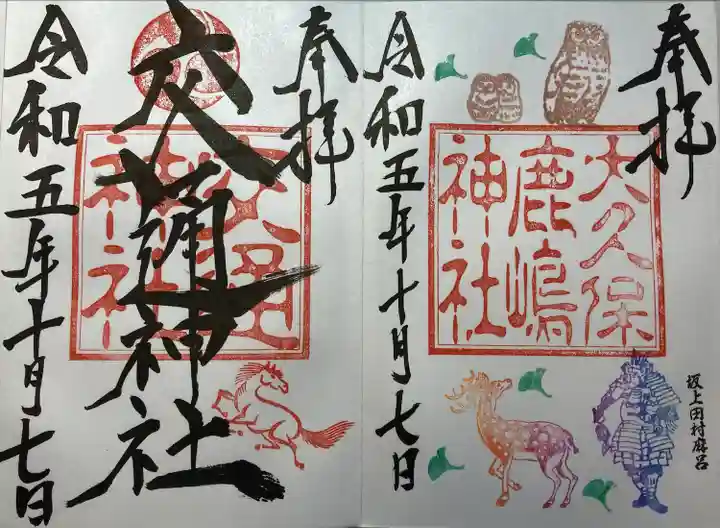 奉拝
大久保
鹿嶋
神社
坂上田村麻呂
令和五年十月七日
奉拝
交通神社
神社
令和五年十月七日